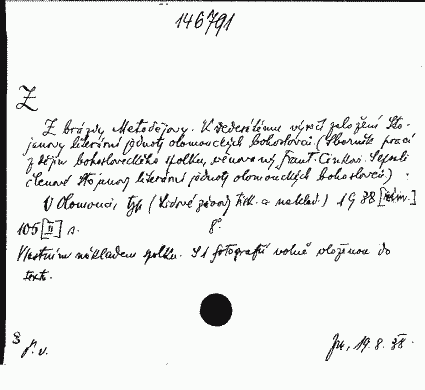 146791
Z
Z brázdy Metodějovy. K výročí založení Sto-
janovy literární jednoty olomouckých bohoslovců (Sborník prací
z dějin bohosloveckého spolku, věnovaný Frant. Cinkovi. Sepsali
členové Stojanovy literární jednoty olomouckých bohoslovců).
V Olomouci, typ. (Lidové závody tisk. a naklad.) 1938
105 [II] s. 8°.
Vlastním nákladem spolku. S 1 fotografií volně vloženou do
textu.
19.8.38.